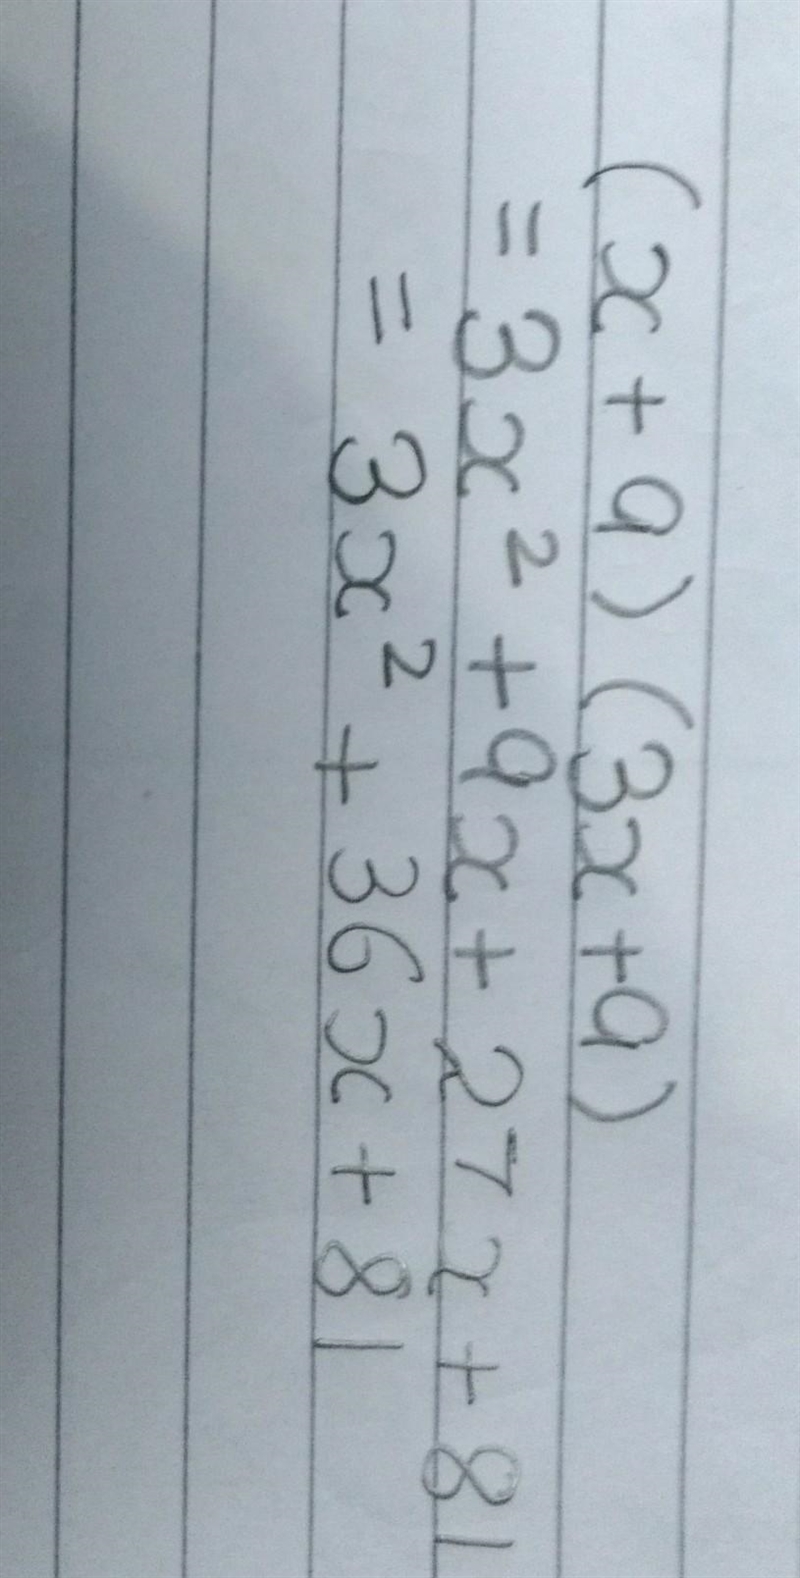 (x + 9) (3x + 9)
= 3x² + 9x + 27x + 81
= 3x² + 36x + 81